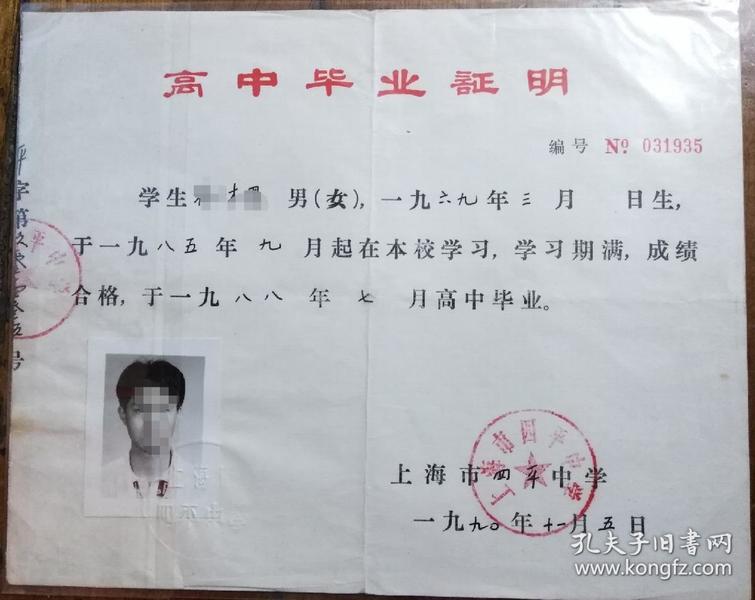 高中毕业証明
编号 № 031935
学生 男(女),一九六九年三月 日生,
于一九八五年九月起在本校学习,学习期满,成绩
合格,于一九八八年七月高中毕业。
上海市四平中学
一九九〇年十一月五日
上海市四平中学
平字第 号
孔夫子旧書网
www.kongfz.com